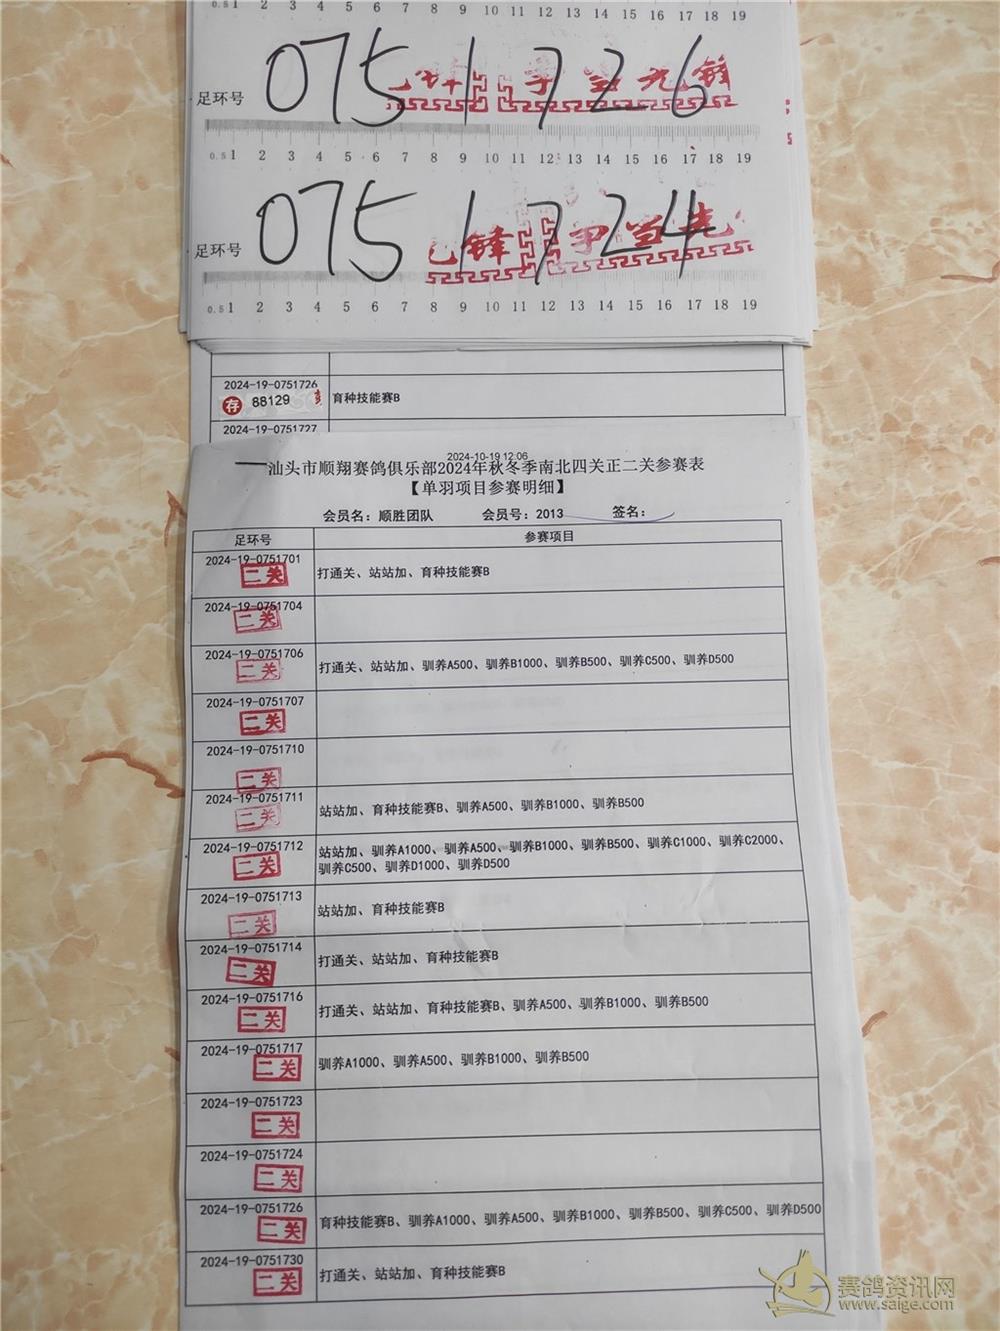 0.5 1 2 3 4 5 6 7 8 9 10 11 12 13 14 15 16 17 18 19
足环号 0751726
争当先锋
0.5 1 2 3 4 5 6 7 8 9 10 11 12 13 14 15 16 17 18 19
足环号 0751724
锋 争当先
0.5 1 2 3 4 5 6 7 8 9 10 11 12 13 14 15 16 17 18 19
2024-19-0751726
存 88129 育种技能赛B
2024-19-0751727
2024-10-19 12:06
汕头市顺翔赛鸽俱乐部2024年秋冬季南北四关正二关参赛表
【单羽项目参赛明细】
会员名: 顺胜团队 会员号: 2013 签名:
足环号 参赛项目
2024-19-0751701
二关 打通关、站站加、育种技能赛B
2024-19-0751704
二关
2024-19-0751706
二关 打通关、站站加、驯养A500、驯养B1000、驯养B500、驯养C500、驯养D500
2024-19-0751707
二关
2024-19-0751710
二关
2024-19-0751711
二关 站站加、育种技能赛B、驯养A500、驯养B1000、驯养B500
2024-19-0751712
二关 站站加、驯养A1000、驯养A500、驯养B1000、驯养B500、驯养C1000、驯养C2000、
驯养C500、驯养D1000、驯养D500
2024-19-0751713
二关 站站加、育种技能赛B
2024-19-0751714
二关 打通关、站站加、育种技能赛B
2024-19-0751716
二关 打通关、站站加、育种技能赛B、驯养A500、驯养B1000、驯养B500
2024-19-0751717
二关 驯养A1000、驯养A500、驯养B1000、驯养B500
2024-19-0751723
二关
2024-19-0751724
二关
2024-19-0751726
二关 育种技能赛B、驯养A1000、驯养A500、驯养B1000、驯养B500、驯养C500、驯养D500
2024-19-0751730
二关 打通关、站站加、育种技能赛B
赛鸽资讯网
www.saige.com